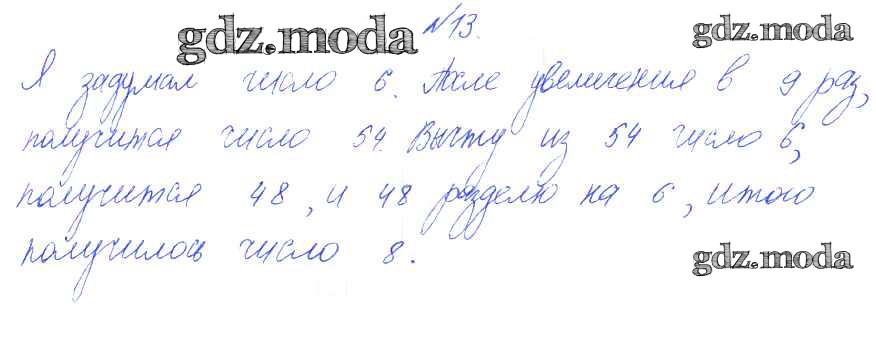 gdz.moda №13. gdz.moda
Я задумал число 6. После увеличения в 9 раз,
получится число 54. Вычту из 54 число 6,
получится 48, и 48 разделю на 6, итого
получилось число 8.
gdz.moda